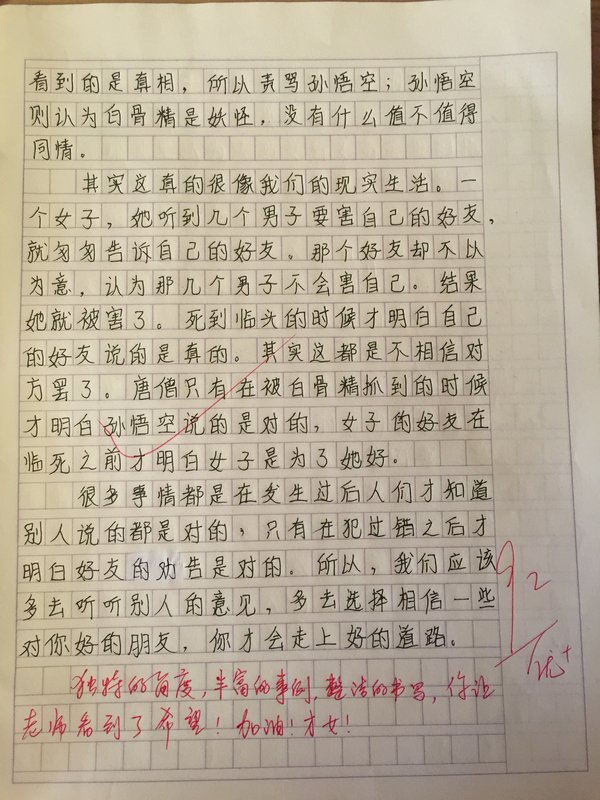 看到的是真相，所以责骂孙悟空；孙悟空
则认为白骨精是妖怪，没有什么值不值得
同情。
其实这真的很像我们的现实生活。一
个女子，她听到几个男子要害自己的好友，
就匆匆告诉自己的好友。那个好友却不以
为意，认为那几个男子不会害自己。结果
她就被害了。死到临头的时候才明白自己
的好友说的是真的。其实这都是不相信对
方罢了。唐僧只有在被白骨精抓到的时候
才明白孙悟空说的是对的，女子的好友在
临死之前才明白女子是为了她好。
很多事情都是在发生过后人们才知道
别人说的都是对的，只有在犯过错之后才
明白好友的劝告是对的。所以，我们应该
多去听听别人的意见，多去选择相信一些
对你好的朋友，你才会走上好的道路。
92
优+
独特的角度，丰富的事例，整洁的书写，你让
老师看到了希望！加油！才女！